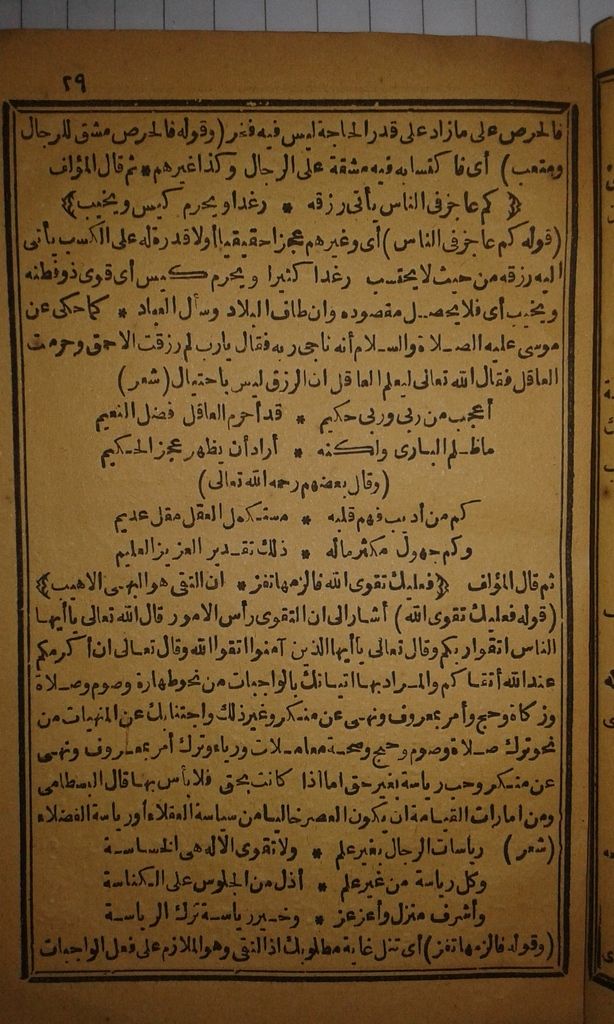 ٢٩
فالحرص على مازاد على قدر الحاجة ليس فيه فخر (وقوله فالحرص مشق للرجال
ومتعب) أى فاكتسابه فيه مشقة على الرجال وكذا غيرهم * ثم قال المؤلف
﴿كم عاجز فى الناس يأتى رزقه * رغدا ويحرم كيس ويخيب﴾
(قوله كم عاجز فى الناس) أى وغيرهم عجزا حقيقيا أولا قدرة له على الكسب يأتى
اليه رزقه من حيث لا يحتسب رغدا كثيرا ويحرم كيس أى قوى ذو فطنه
ويخيب أى فلا يحصل مقصوده وان طاف البلاد وسأل العباد * كما حكى عن
موسى عليه الصلاة والسلام أنه ناجى ربه فقال يارب لم رزقت الاحمق وحرمت
العاقل فقال الله تعالى ليعلم العاقل ان الرزق ليس باحتيال (شعر)
أعجب من ربى وربى حكيم * قد أحرم العاقل فضل النعيم
ماظلم البارى ولكنه * أراد أن يظهر عجز الحكيم
(وقال بعضهم رحمه الله تعالى)
كم من أديب فهم قلبه * مستكمل العقل مقل عديم
وكم جهول مكثر ماله * ذلك تقدير العزيز العليم
ثم قال المؤلف ﴿فعليك تقوى الله فالزمها تفز * ان التقى هو البهى الاهيب﴾
(قوله فعليك تقوى الله) أشار الى ان التقوى رأس الامور قال الله تعالى ياأيها
الناس اتقوا ربكم وقال تعالى ياأيها الذين آمنوا اتقوا الله وقال تعالى ان أكرمكم
عند الله أتقاكم والمراد بها اتيانك بالواجبات من نحو طهارة وصوم وصلاة
وزكاة وحج وأمر بمعروف ونهى عن منكر وغير ذلك واجتنابك عن المنهيات من
نحو ترك صلاة وصوم وحج وصحة معاملات ورياء وترك أمر بمعروف ونهى
عن منكر وحب رياسة بغير حق اما اذا كانت بحق فلا بأس بها قال البسطامى
ومن امارات القيامة ان يكون العصر خاليا من سياسة العقلاء أو رياسة الفضلاء
(شعر) رياسات الرجال بغير علم * ولا تقوى الاله هى الخساسة
وكل رياسة من غير علم * أذل من الجلوس على الكناسة
وأشرف منزل وأعز عز * وخير رياسة ترك الرياسة
(وقوله فالزمها تفز) أى تنل غاية مطلوبك اذ التقى وهو الملازم على فعل الواجبات